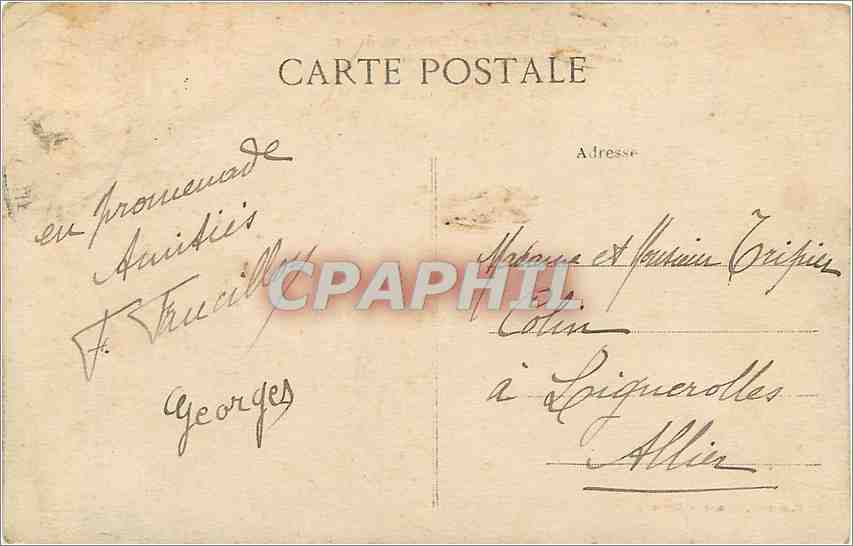 CARTE POSTALE
en promenade
Amitiés
F.
Georges
CPAPHIL
Adresse
Madame et Monsieur Tripier
Colin
à Lignerolles
Allier